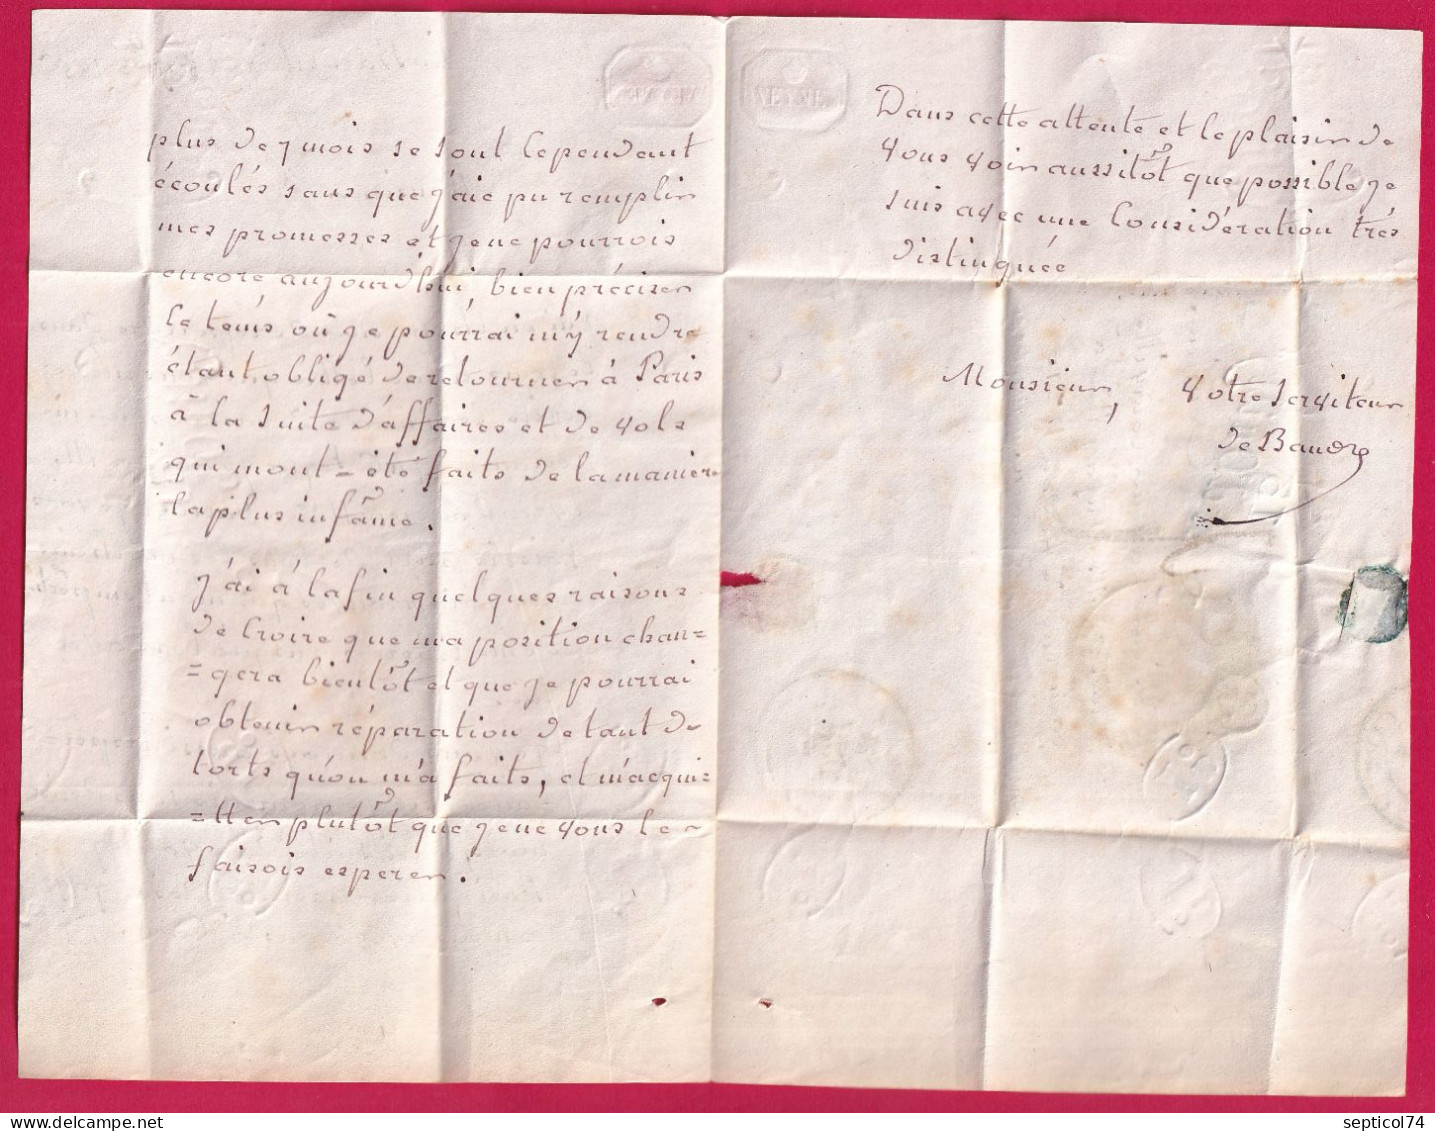 plus de 7 mois se sont cependant
écoulés sans que j'aie pu remplir
mes promesses et je ne pourrois
encore aujourd'hui, bien préciser
le tems où je pourrai m'y rendre
étant obligé de retourner à Paris
à la suite d'affaires et de vols
qui mont-été faits de la maniere
la plus infâme.
j'ai à la fin quelques raisons
de croire que ma position chan=
=gera bientôt et que je pourrai
obtenir réparation de tant de
torts qu'on m'a faits, et m'acqui=
=tter plutôt que je ne vous le
faisois esperer.
Dans cette attente et le plaisir de
vous voir aussitôt que possible je
suis avec une Considération très
distinguée
Monsieur, Votre Serviteur
de Baudre
septicol74
www.delcampe.net